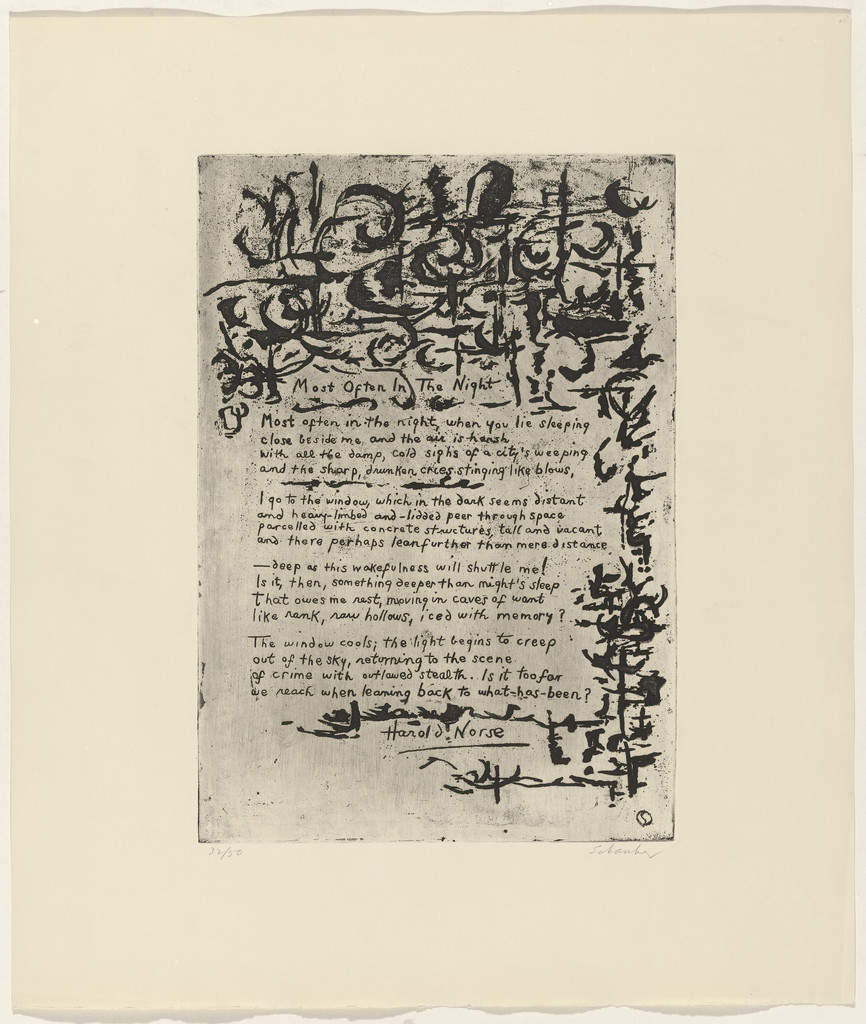 Most Often In The Night
Most often in the night, when you lie sleeping
close beside me, and the air is harsh
with all the damp, cold sighs of a city's weeping
and the sharp, drunken cries stinging like blows,
I go to the window, which in the dark seems distant
and heavy-limbed and -lidded peer through space
parcelled with concrete structures, tall and vacant
and there perhaps lean further than mere distance
—deep as this wakefulness will shuttle me!
Is it, then, something deeper than night's sleep
that owes me rest, moving in caves of want
like rank, raw hollows, iced with memory?
The window cools; the light begins to creep
out of the sky, returning to the scene
of crime with outlawed stealth. Is it too far
we reach when leaning back to what-has-been?
Harold Norse
32/50
Schanker